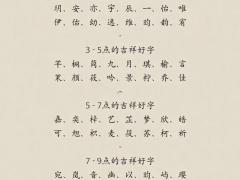 玥、安、亦、宇、辰、一、怡、唯
伊、佑、幼、逸、维、昀、韵、宥
3-5点的吉祥好字
芊、桐、茼、九、月、琪、榆、言
果、颜、筱、吟、景、柠、乔、佳
5-7点的吉祥好字
嘉、奕、梓、艺、芷、梦、欣、皓
可、旭、积、麦、筱、苏、柯、祈
7-9点的吉祥好字
宛、岚、音、幽、以、昀、屿、璎